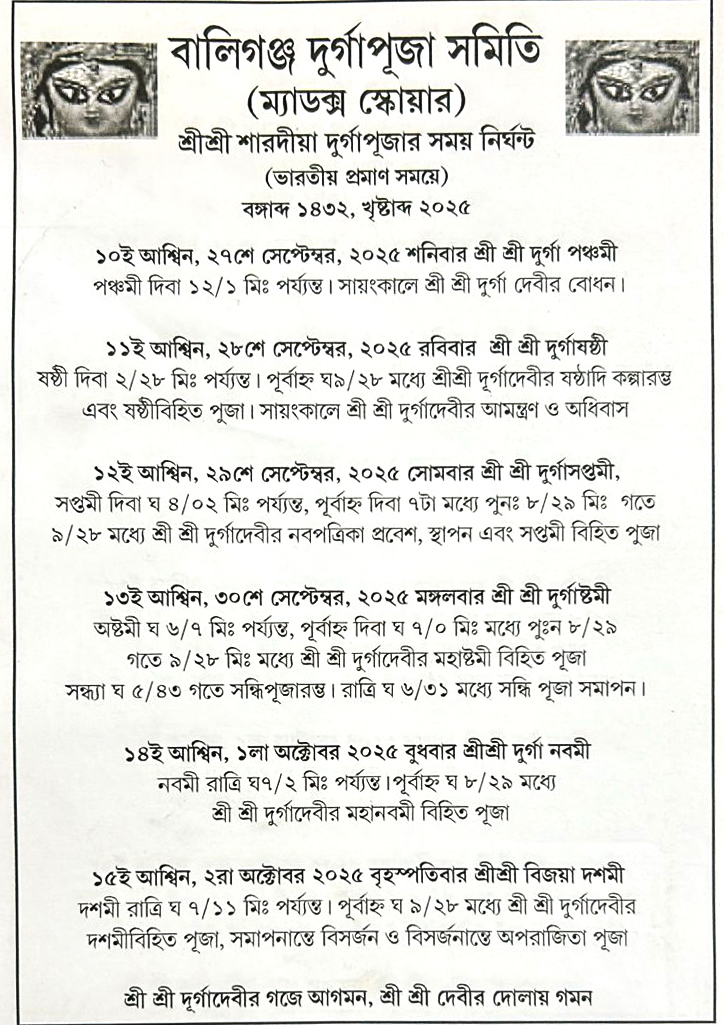 বালিগঞ্জ দুর্গাপূজা সমিতি
(ম্যাডক্স স্কোয়ার)
শ্রীশ্রী শারদীয়া দুর্গাপূজার সময় নির্ঘন্ট
(ভারতীয় প্রমাণ সময়ে)
বঙ্গাব্দ ১৪৩২, খৃষ্টাব্দ ২০২৫
১০ই আশ্বিন, ২৭শে সেপ্টেম্বর, ২০২৫ শনিবার শ্রী শ্রী দুর্গা পঞ্চমী
পঞ্চমী দিবা ১২/১ মিঃ পর্য্যন্ত। সায়ংকালে শ্রী শ্রী দুর্গা দেবীর বোধন।
১১ই আশ্বিন, ২৮শে সেপ্টেম্বর, ২০২৫ রবিবার শ্রী শ্রী দুর্গাষষ্ঠী
ষষ্ঠী দিবা ২/২৮ মিঃ পর্য্যন্ত। পূর্বাহ্ন ঘ৯/২৮ মধ্যে শ্রীশ্রী দূর্গাদেবীর ষষ্ঠাদি কল্পারম্ভ
এবং ষষ্ঠীবিহিত পুজা। সায়ংকালে শ্রী শ্রী দুর্গাদেবীর আমন্ত্রণ ও অধিবাস
১২ই আশ্বিন, ২৯শে সেপ্টেম্বর, ২০২৫ সোমবার শ্রী শ্রী দুর্গাসপ্তমী,
সপ্তমী দিবা ঘ ৪/০২ মিঃ পর্য্যন্ত, পূর্বাহ্ন দিবা ৭টা মধ্যে পুনঃ ৮/২৯ মিঃ গতে
৯/২৮ মধ্যে শ্রী শ্রী দুর্গাদেবীর নবপত্রিকা প্রবেশ, স্থাপন এবং সপ্তমী বিহিত পুজা
১৩ই আশ্বিন, ৩০শে সেপ্টেম্বর, ২০২৫ মঙ্গলবার শ্রী শ্রী দুর্গাষ্টমী
অষ্টমী ঘ ৬/৭ মিঃ পর্য্যন্ত, পূর্বাহ্ন দিবা ঘ ৭/০ মিঃ মধ্যে পুঃন ৮/২৯
গতে ৯/২৮ মিঃ মধ্যে শ্রী শ্রী দুর্গাদেবীর মহাষ্টমী বিহিত পূজা
সন্ধ্যা ঘ ৫/৪৩ গতে সন্ধিপূজারম্ভ। রাত্রি ঘ ৬/৩১ মধ্যে সন্ধি পূজা সমাপন।
১৪ই আশ্বিন, ১লা অক্টোবর ২০২৫ বুধবার শ্রীশ্রী দুর্গা নবমী
নবমী রাত্রি ঘ৭/২ মিঃ পর্য্যন্ত।পূর্বাহ্ন ঘ ৮/২৯ মধ্যে
শ্রী শ্রী দুর্গাদেবীর মহানবমী বিহিত পূজা
১৫ই আশ্বিন, ২রা অক্টোবর ২০২৫ বৃহস্পতিবার শ্রীশ্রী বিজয়া দশমী
দশমী রাত্রি ঘ ৭/১১ মিঃ পর্য্যন্ত। পূর্বাহ্ন ঘ ৯/২৮ মধ্যে শ্রী শ্রী দুর্গাদেবীর
দশমীবিহিত পূজা, সমাপনান্তে বিসর্জন ও বিসর্জনান্তে অপরাজিতা পূজা
শ্রী শ্রী দূর্গাদেবীর গজে আগমন, শ্রী শ্রী দেবীর দোলায় গমন